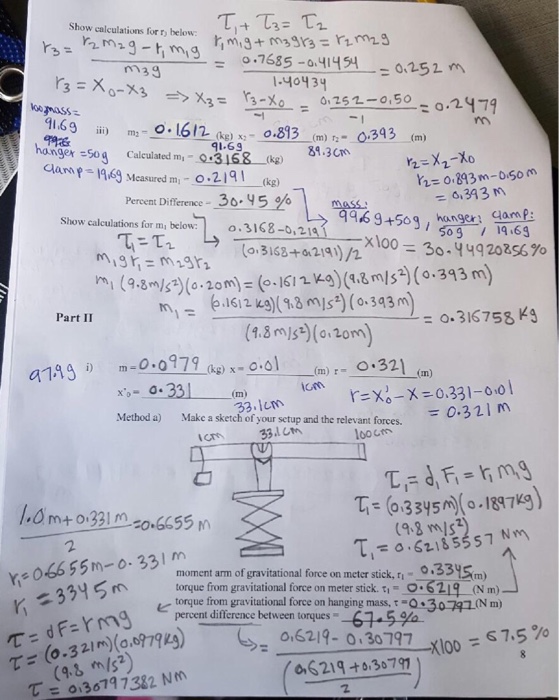 Show calculations for r₃ below: τ₁ + τ₃ = τ₂
r₃ = (r₂m₂g − r₁m₁g) / m₃g r₁m₁g + m₃gr₃ = r₂m₂g
= (0.7685 − 0.41454) / 1.40434 = 0.252 m
r₃ = X₀ − X₃ ⇒ X₃ = (r₃ − X₀) / −1 = (0.252 − 0.50) / −1 = 0.2479 m
mass =
91.6g iii) m₂ = 0.1612 (kg) x₂ = 0.893 (m) r₂ = 0.393 (m)
91.6g 89.3cm
hanger = 50g Calculated m₁ = 0.3168 (kg) r₂ = X₂ − X₀
clamp = 19.6g Measured m₁ = 0.2191 (kg) r₂ = 0.893m − 0.50m
= 0.393m
Percent Difference = 30.45 % mass: 99.6g + 50g, hanger: 50g, clamp: 19.6g
Show calculations for m₁ below: (0.3168 − 0.2191) / ((0.3168 + 0.2191)/2) × 100 = 30.44920856%
τ₁ = τ₂
m₁gr₁ = m₂gr₂
m₁ (9.8m/s²)(0.20m) = (0.1612 kg)(9.8m/s²)(0.393m)
m₁ = (0.1612 kg)(9.8 m/s²)(0.393m) / (9.8m/s²)(0.20m) = 0.316758 kg
Part II
97.9g i) m = 0.0979 (kg) x = 0.01 (m) r = 0.321 (m)
1cm
x'₀ = 0.331 (m) r = X'₀ − X = 0.331 − 0.01
33.1cm = 0.321 m
Method a) Make a sketch of your setup and the relevant forces.
1cm 33.1cm 100cm
τ₁ = d₁F₁ = r₁m₁g
τ₁ = (0.3345m)(0.1897kg)
(9.8 m/s²)
τ₁ = 0.62185557 Nm
(1.0m + 0.331m) / 2 = 0.6655 m
r₁ = 0.6655m − 0.331m
r₁ = 3345m
moment arm of gravitational force on meter stick, r₁ = 0.3345 (m)
torque from gravitational force on meter stick. τ₁ = 0.6219 (N m)
torque from gravitational force on hanging mass, τ = 0.30797 (N m)
percent difference between torques = 67.5%
τ = dF = rmg
τ = (0.321m)(0.0979kg)
(9.8 m/s²)
τ = 0.30797382 Nm
= (0.6219 − 0.30797) / ((0.6219 + 0.30797)/2) × 100 = 67.5%
8